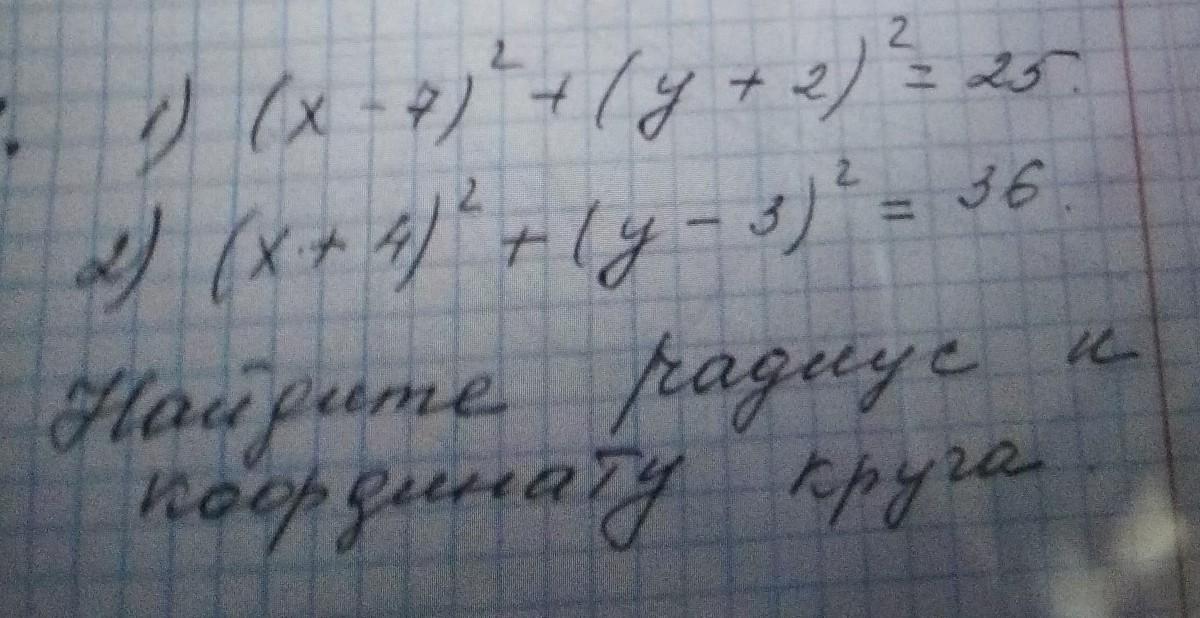 1) (x - 7)² + (y + 2)² = 25.
2) (x + 4)² + (y - 3)² = 36.
Найдите радиус и
координату круга